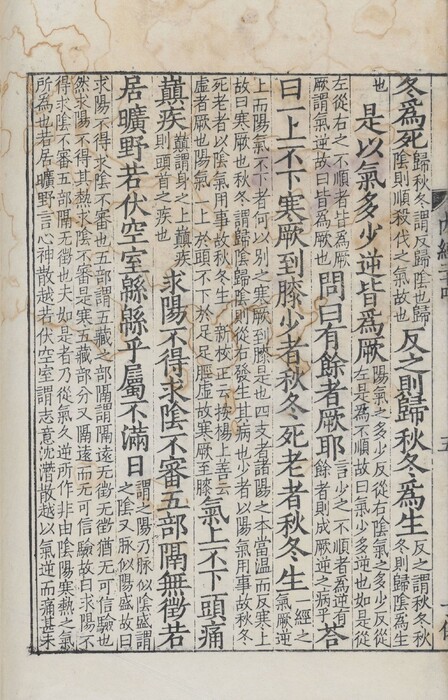 冬爲死歸秋冬謂反歸陰也歸陰則順殺伐之氣故也反之則歸秋冬爲生反之謂秋冬秋冬則歸陰爲生
也是以氣多少逆皆爲厥陽氣之多少反從右陰氣之多少反從左是爲不順故曰氣少多逆也如是從
左從右之不順者皆爲厥厥謂氣逆故曰皆爲厥也問曰有餘者厥耶言少之不順者爲逆有餘者則成厥逆之病乎荅
曰一上不下寒厥到膝少者秋冬死老者秋冬生一經之氣厥逆
上而陽氣不下者何以別之寒厥到膝是也四支者諸陽之本當温而反寒上故曰寒厥也秋冬謂歸陰歸陰則從右發生其病也少者以陽氣用事故秋冬
死老者以陰氣用事故秋冬生新校正云按楊上善云虛者厥也陽氣一上於頭不下於足足脛虛故寒厥至膝氣上不下頭痛
巔疾巔謂身之上巔疾則頭首之疾也求陽不得求陰不審五部隔無徵若
居曠野若伏空室緜緜乎屬不滿日謂之陽乃脉似陰盛謂之陰又脉似陽盛故曰
求陽不得求陰不審也五部謂五藏之部隔謂隔遠无徵无徵猶无可信驗也然求陽不得其熱求陰不審是寒五藏部分又隔遠而无可信驗故曰求陽不
得求陰不審五部隔无徵也夫如是者乃從氣久逆所作非由陰陽寒熱之氣所爲也若居曠野言心神散越若伏空室謂志意沈潛散越以氣逆而痛甚未
五